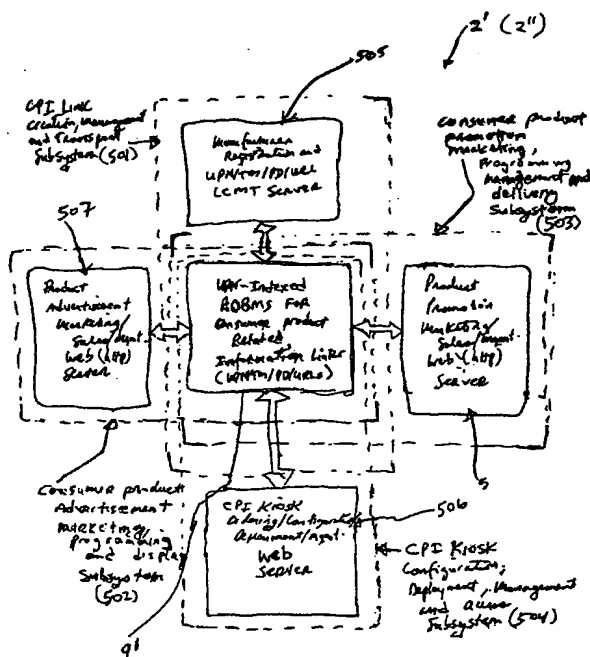 2' (2")
505
CPI LINK
Creation, Management
and Transport
Subsystem (501)
Manufacturer
Registration and
UPN/TM/PD/URL
LCMT SERVER
Consumer product
promotion
marketing,
programming
management and
delivery
Subsystem
(503)
507
Product
Advertisement
Marketing/
Sales/mgmt.
Web (http)
Server
UPN-Indexed
RDBMS FOR
Consumer product
Related
Information Links
(UPN/TM/PD/URLs)
Product
Promotion
Marketing/
Sales/mgmt.
Web (http)
SERVER
Consumer product
Advertisement
MARKETING,
programming
and display
Subsystem
(502)
CPI KIOSK
Ordering/Configuration/
Deployment/Mgmt.
Web
SERVER
506
5
CPI KIOSK
Configuration,
Deployment, Management
and
Subsystem (504)
9'